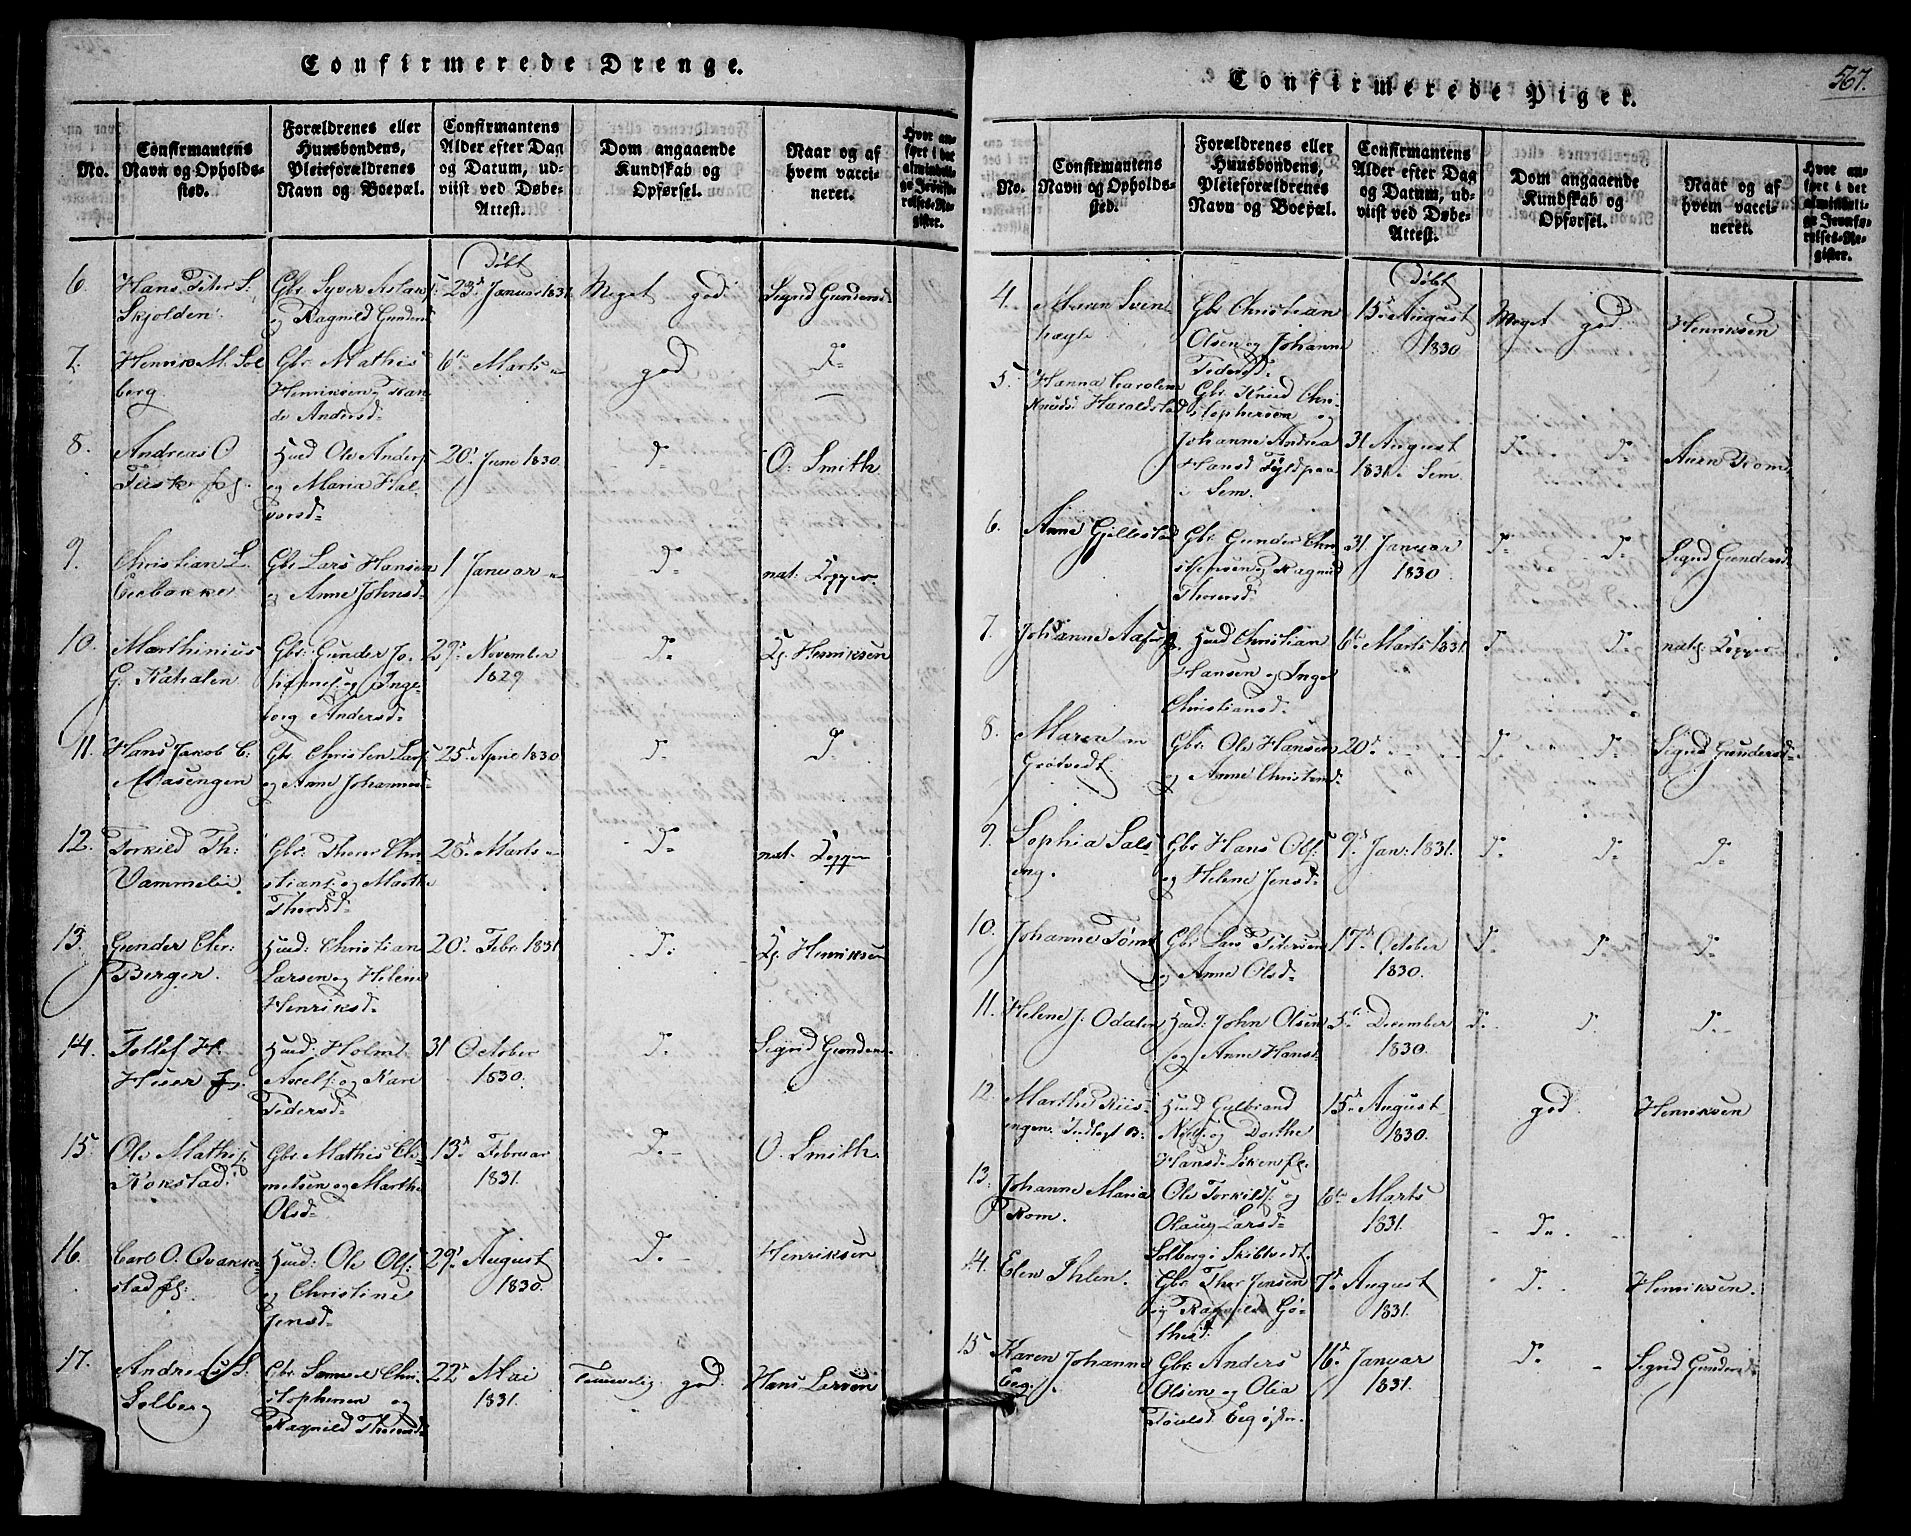 Confirmerede Drenge.
No.
Confirmantens
Navn og Opholds-
sted.
Forældrenes eller
Huusbondens,
Pleieforældrenes
Navn og Boepæl.
Confirmantens
Alder efter Dag
og Datum, ud-
viist ved Døbe-
Attest.
Dom angaaende
Kundskab og
Opførsel.
Naar og af
hvem vacci-
neret.
Hvor an-
ført i det
almindeli-
ge Jevnfø-
relses-Re-
gister.
6.
Hans Peter S.
Skjolden.
Gbr. Syver Aslaks:
og Ragnild Gunders
Døbt
23d Januar 1831.
Meget god
Sigrid Gundersd
7.
Henrik M. Sol
berg
Gbr. Mathis
Henriksen og Kan-
de Andersd=
6te Marts "
god
D=
8.
Andreas O
Tusk
Huusd Ole Anders:
og Maria Hal-
vorsd=
20d Juni 1830.
D=
O: Smith
9.
Christian L.
Eebakke
Gbr Lars Hansen
og Anne Johnsd=
1 Januar "
D=
nat: Kopper
10.
Marthinius
G. Kahalen
Gbr: Gunder Jo-
hannes: og Inge-
borg Andersd=
29d November
1829
D=
Henriksen
11.
Hans Jakob C:
Masengen
Gbr. Christen Lars:
og Anne Johannesd
25d April 1830.
D=
D=
12.
Torkild Th:
Vammelie
Gbr. Thore Chri-
stians: og Marthe
Thordsd=
28d Marts "
D=
nat. Kopper
13.
Gunder Chr:
Berger.
Huusd: Christian
Larsen og Helene
Henriksd=
20d Febr. 1831
D=
Henriksen
14.
Tollef H.
Huser
Huusd: Holm
Axels: og Kari
Pedersd=
31 October
1830.
D=
Sigrid Gunders
15.
Ole Mathis:
Kokstad
Gbr. Mathis Cle-
metsen og Marthe
Olsd=
13d Februar
1831.
D=
O. Smith.
16.
Carl O. Qvakke-
stad
Huusd: Ole Ols:
og Christine
Jensd=
29d August
1830.
D=
Henriksen
17.
Andreas S.
Solberg
Gbr. Samuel Chri-
stophersen og
Ragnild Thoresd=
22d Mai
1831.
Temmelig god
Hans Larsen
567.
Confirmerede Piger.
No.
Confirmantens
Navn og Opholds-
sted.
Forældrenes eller
Huusbondens,
Pleieforældrenes
Navn og Boepæl.
Confirmantens
Alder efter Dag
og Datum, ud-
viist ved Døbe-
Attest.
Dom angaaende
Kundskab og
Opførsel.
Naar og af
hvem vacci-
neret.
Hvor an-
ført i det
almindeli-
ge Jevnfø-
relses-Re-
gister.
4.
Maren Sven
hagle
Gbr Christian
Olsen og Johanne
Pedersd
Døbt
15d August
1830
Meget god
Henriksen
5.
Hanna Caroline
Knuds: Haraldstad
Gbr. Knud Chri-
stophersen og
Johanne Andrea
Hansd Fyldpaa
i Sem.
31 August
1831. Sem
D= D=
Rom
6.
Anne Gjellestad
Gbr. Gunder Chri-
stensen og Ragnild
Thoresd=
31 Januar
1830.
D= D=
Sigrid Gundersd=
7.
Johanne
Huusd Christian
Hansen og Inger
Christiansd=
6te Marts 1831
D= D=
natl. Kopper
8.
Maren
Grøtvedt.
Gbr. Ole Hansen
og Anne Christensd=
20d
D= D=
Sigrid Gundersd=
9.
Sophia Sols-
eng.
Gbr. Hans Ols:
og Helene Jensd=
9d Jan: 1831.
D= D=
D=
10.
Johanne
Gbr Lars Petersen
og Anne Olsd=
17d October
1830.
D= D=
D=
11.
Helene J. Odalen
Huusd: John Olsen
og Anne Hansd=
5te December
1830.
D= D=
D=
12.
Marthe Riis-
engen.
Huusd Gulbrand
og Dorthe
Hansd=
15d August
1830.
god
Henriksen
13.
Johanne Maria
Rom.
Ole Torkilds: og
Olaug Larsd=
Solberg i Skibtvedt.
6te Marts
1831.
D=
14.
Elen Ihlen.
Gbr. Thor Jensen
og Ragnild Gu-
thesd
7d August
1831.
D=
Henriksen.
15.
Karen Johanne
Eeg.
Gbr. Anders
Olsen og Olia
16d Januar
1831.
D=
Sigrid Gundersd=